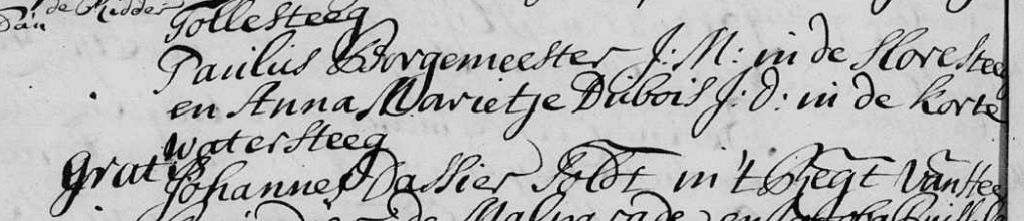 de Ridder Tollesteeg
van
Paulus Borgemeester J: M: in de Horesteeg
en Anna Marietje Dubois J: d: in de korte
watersteeg
gratis Johannes Dassier Soldt in 't Regt van Hee
de en